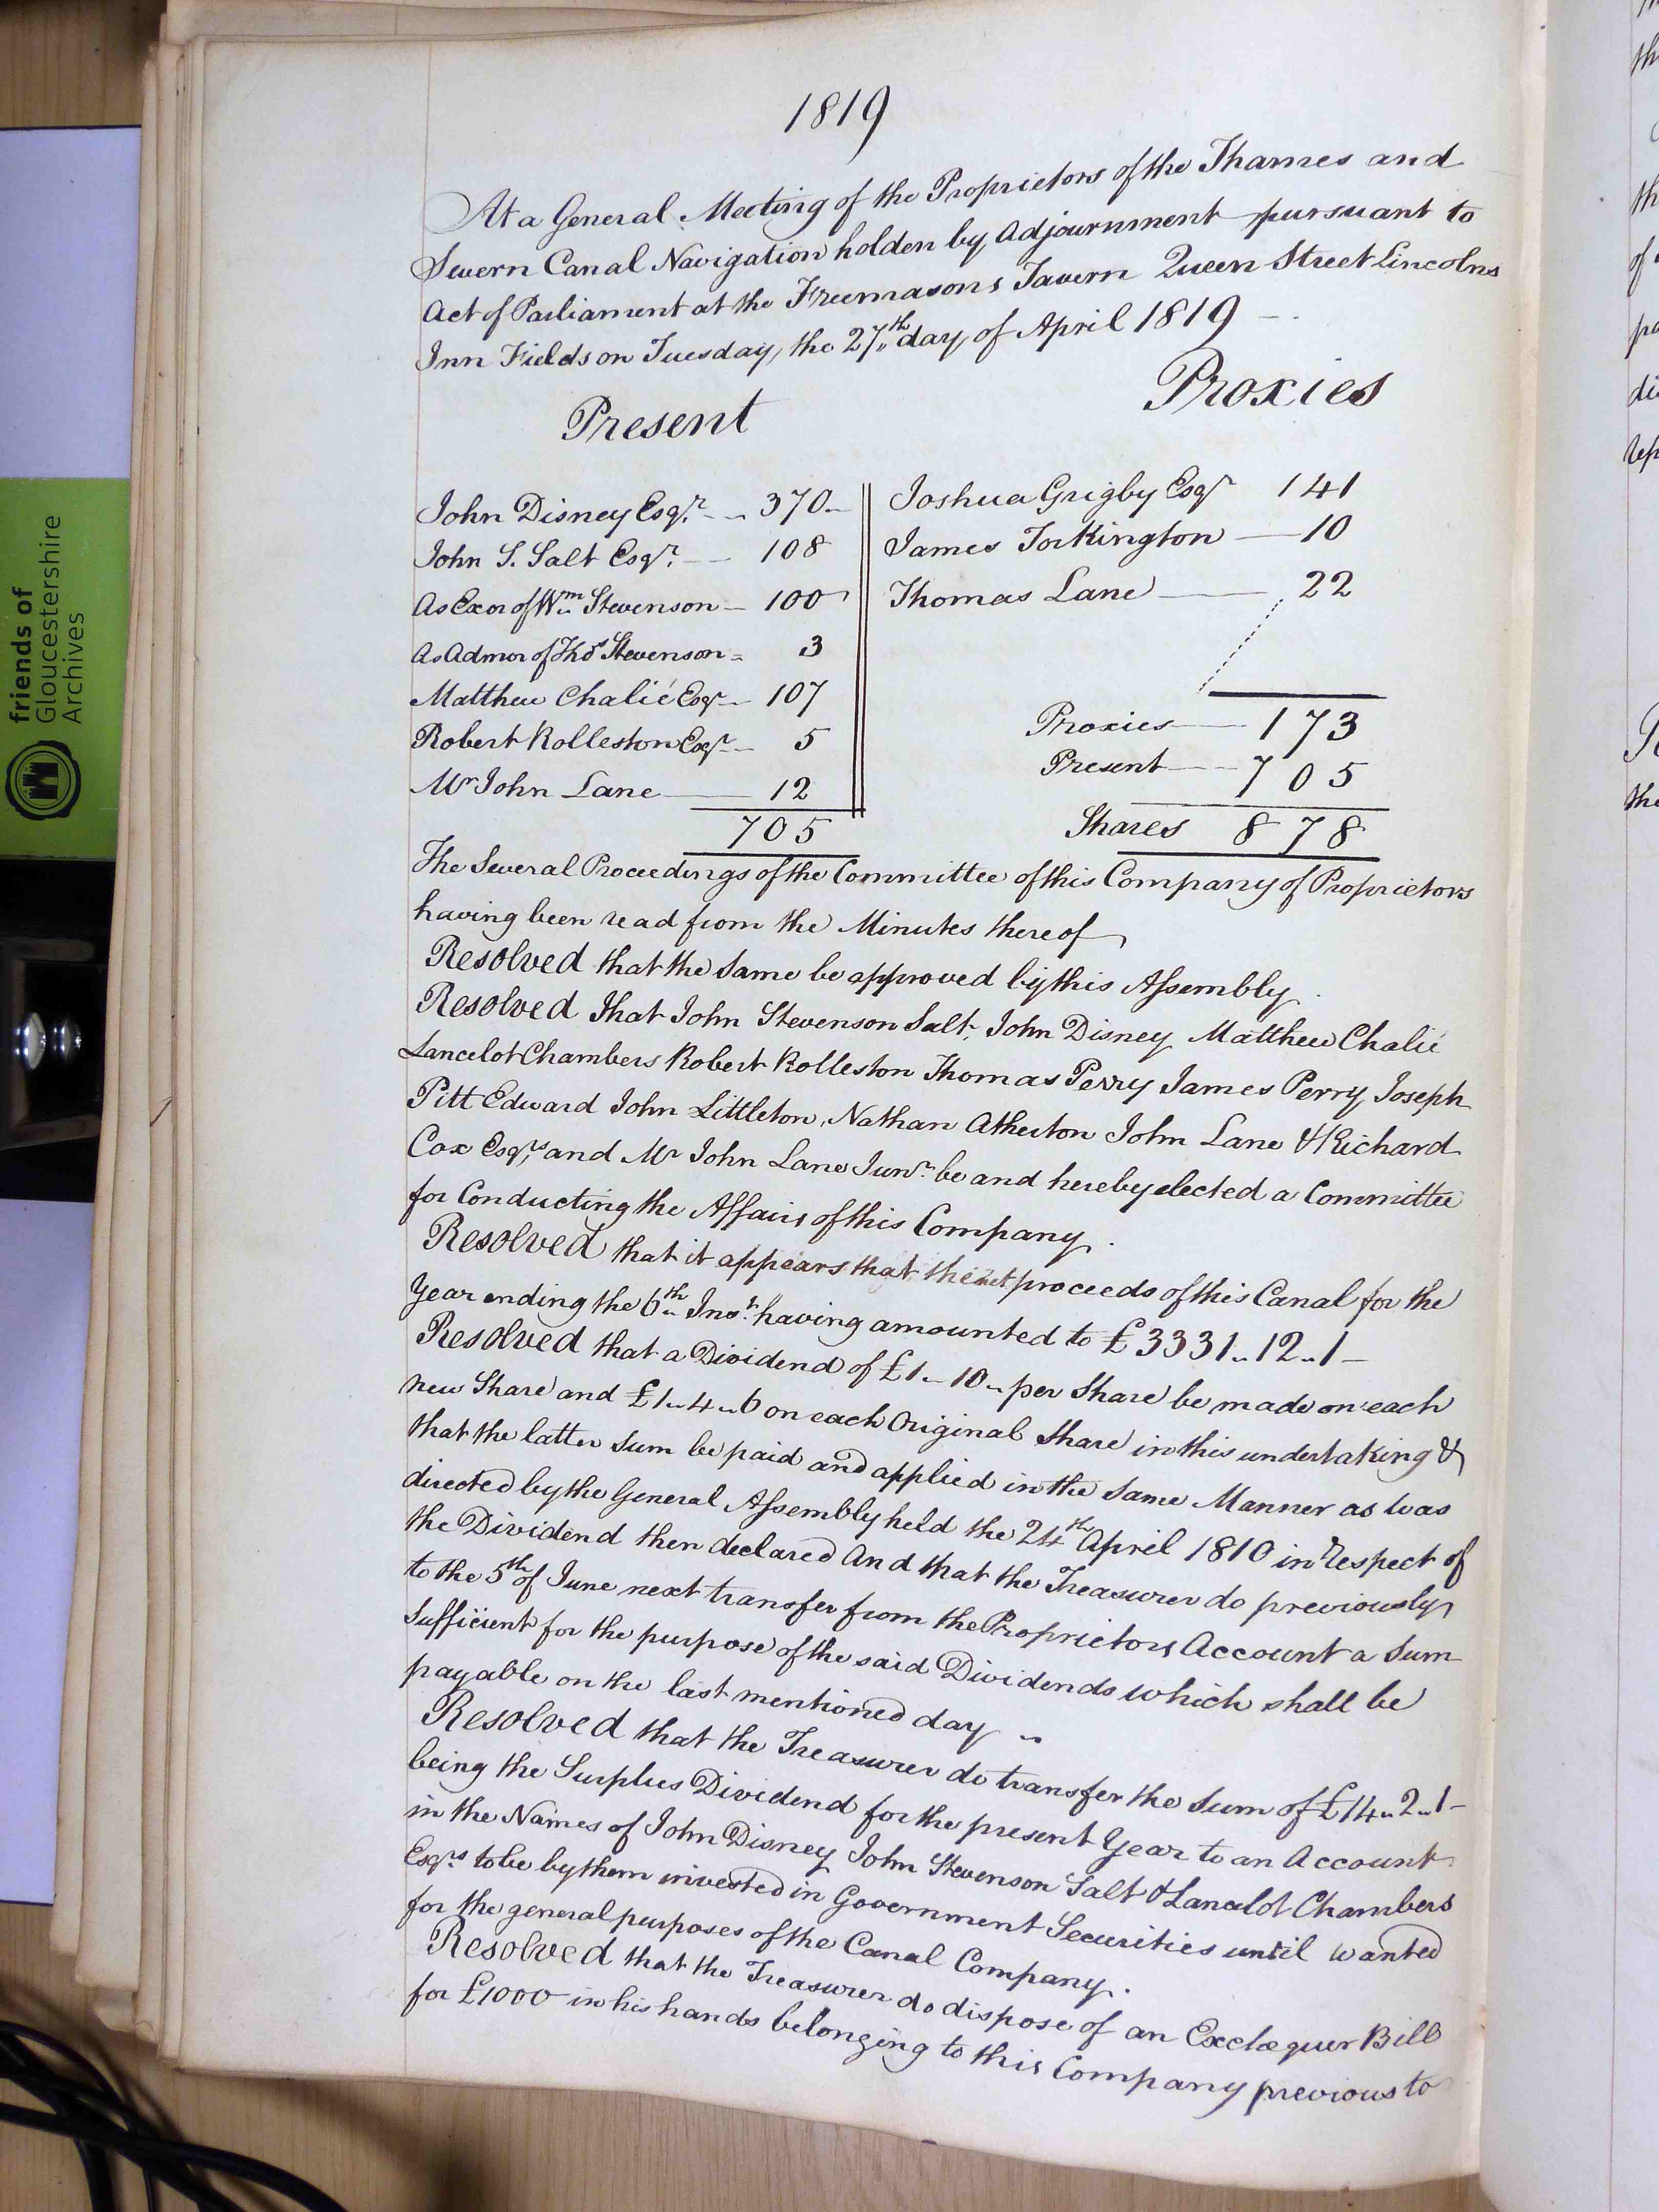 1819
At a General Meeting of the Proprietors of the Thames and
Severn Canal Navigation holden by Adjournment pursuant to
Act of Parliament at the Freemasons Tavern Queen Street Lincolns
Inn Fields on Tuesday, the 27th day of April 1819
Present
Proxies
John Disney Esqr. 370
John S. Salt Esqr. 108
As Exor of Wm Stevenson 100
As Admor of Thos Stevenson 3
Matthew Chalié Esqr 107
Robert Rolleston Esqr 5
Mr John Lane 12
705
Joshua Grigby Esqr 141
James Torkington 10
Thomas Lane 22
Proxies 173
Present 705
Shares 878
The Several Proceedings of the Committee of this Company of Proprietors
having been read from the Minutes thereof
Resolved that the same be approved by this Assembly.
Resolved That John Stevenson Salt, John Disney Matthew Chalié
Lancelot Chambers Robert Rolleston Thomas Perry James Perry Joseph
Pitt Edward John Littleton, Nathan Atherton John Lane & Richard
Cox Esqrs and Mr John Lane Junr. be and hereby elected a Committee
for Conducting the Affairs of this Company.
Resolved that it appears that the net proceeds of this Canal for the
Year ending the 6th Inst. having amounted to £3331..12..1
Resolved that a Dividend of £1..10.. per Share be made on each
new Share and £1..4..6 on each Original Share in this undertaking &
that the latter Sum be paid and applied in the same Manner as was
directed by the General Assembly held the 24th April 1810 in respect of
the Dividend then declared And that the Treasurer do previously
to the 5th of June next transfer from the Proprietors Account a Sum
sufficient for the purpose of the said Dividends which shall be
payable on the last mentioned day
Resolved that the Treasurer do transfer the Sum of £14..2..1
being the Surplus Dividend for the present Year to an Account
in the Names of John Disney John Stevenson Salt & Lancelot Chambers
Esqrs to be by them invested in Government Securities until wanted
for the general purposes of the Canal Company.
Resolved that the Treasurer do dispose of an Exchequer Bill
for £1000 in his hands belonging to this Company previous to
friends of
Gloucestershire
Archives